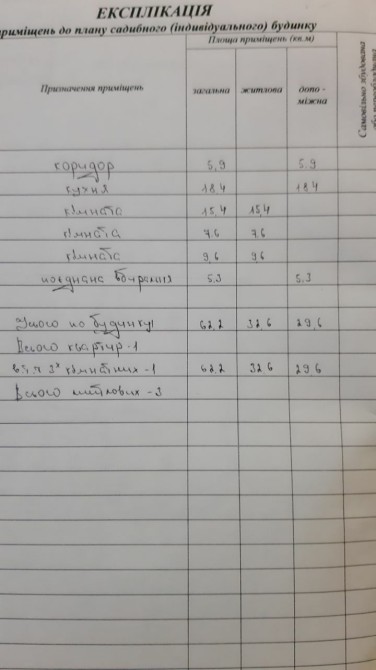 ЕКСПЛІКАЦІЯ
приміщень до плану садибного (індивідуального) будинку
Призначення приміщень
Площа приміщень (кв.м)
загальна житлова допо-
міжна
Самовільно збудована
коридор 5.9 5.9
кухня 18.4 18.4
кімната 15,4 15,4
кімната 7.6 7.6
кімната 9,6 9.6
5.3 5.3
Усього по будинку: 62,2 32,6 29,6
Всього квартир-1
в т.ч 3х кімнатних-1 62.2 32.6 29.6
Всього житлових-3